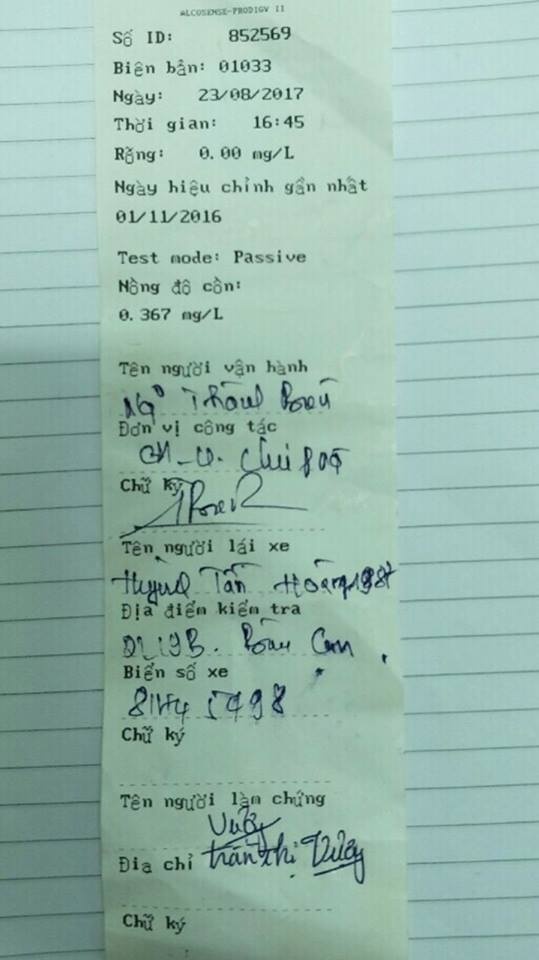 ALCOSENSE-PRODIGY II
Số ID: 852569
Biên bản: 01033
Ngày: 23/08/2017
Thời gian: 16:45
Rỗng: 0.00 mg/L
Ngày hiệu chỉnh gần nhất
01/11/2016
Test mode: Passive
Nồng độ cồn:
0.367 mg/L
Tên người vận hành
Ngô
Đơn vị công tác
Chữ ký
Tên người lái xe
Huỳnh Tấn Hoàng 1987
Địa điểm kiểm tra
QL19B.
Biển số xe
81H4 5498
Chữ ký
Tên người làm chứng
Địa chỉ trần thị
Chữ ký